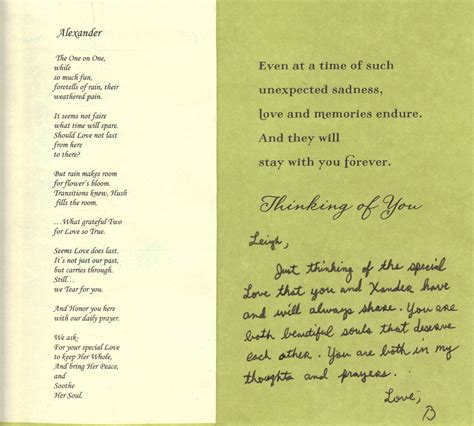 Alexander
The One on One,
while
so much fun,
foretells of rain, their
weathered pain.
It seems not faire
what time will spare.
Should Love not last
from here
to there?
But rain makes room
for flower's bloom.
Transitions knew, Hush
fills the room.
…What grateful Two
for Love so True.
Seems Love does last.
It's not just our past,
but carries through.
Still…
we Tear for you.
And Honor you here
with our daily prayer.
We ask-
For your special Love
to keep Her Whole,
And bring Her Peace,
and
Soothe
Her Soul.
Even at a time of such
unexpected sadness,
love and memories endure.
And they will
stay with you forever.
Thinking of You
Leigh,
Just thinking of the special
Love that you and Xander have
and will always share. You are
both beautiful souls that deserve
each other. You are both in my
thoughts and prayers.
Love,
B